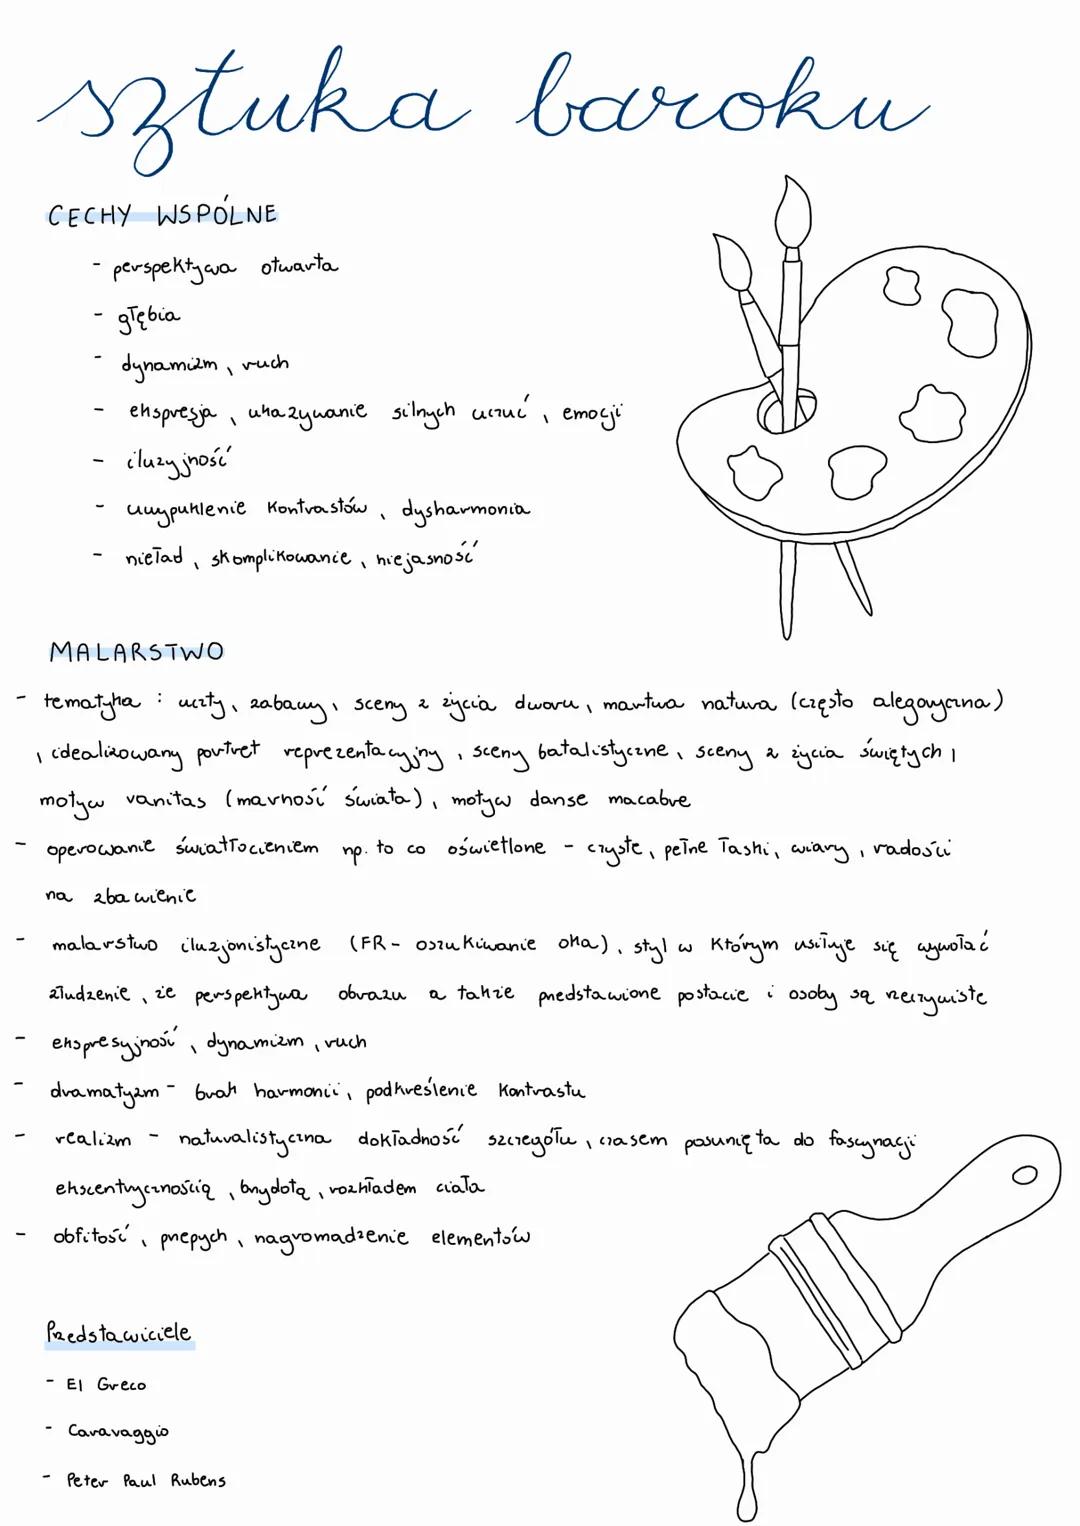 sztuka baroku
CECHY WSPÓLNE
- perspektywa otwarta
- głębia
- dynamizm, ruch
- ekspresja, ukazywanie silnych uczuć, emocji
- iluzyjność
- uwypuklenie kontrastów, dysharmonia
- nieład, skomplikowanie, niejasność
MALARSTWO
- tematyka : uczty, zabawy, sceny z życia dworu, martwa natura (często alegoryczna)
, idealizowany portret reprezentacyjny, sceny batalistyczne, sceny z życia świętych,
motyw vanitas (marność świata), motyw danse macabre
- operowanie światłocieniem np. to co oświetlone - czyste, pełne łaski, wiary, radości
na zbawienie
- malarstwo iluzjonistyczne (FR - oszukiwanie oka), styl w którym usiłuje się wywołać
złudzenie, że perspektywa obrazu a także przedstawione postacie i osoby są rzeczywiste
- ekspresyjność, dynamizm, ruch
- dramatyzm - brak harmonii, podkreślenie kontrastu
- realizm - naturalistyczna dokładność szczegółu, czasem posunięta do fascynacji
ekscentrycznością, brzydotą, rozkładem ciała
- obfitość, przepych, nagromadzenie elementów
Przedstawiciele
- El Greco
- Caravaggio
- Peter Paul Rubens